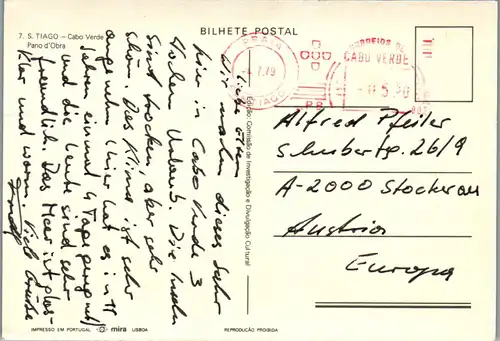 7. S. TIAGO – Cabo Verde
Pano d'Obra
BILHETE POSTAL
PRAIA
7.79
S. TIAGO
CORREIOS DE
CABO VERDE
Liebe Eltern
Wir machen dieses Jahr
hier in Cabo Verde 3
Wochen Urlaub. Die Inseln
sind trocken, aber sehr
schön. Das Klima ist sehr
angenehm (hier hat es in 11
Jahren einmal 4 Tage geregnet)
und die Leute sind sehr
freundlich. Das Meer ist glas-
klar und warm. Viele Grüsse
Edição: Comissão de Investigação e Divulgação Cultural
Alfred Pfeiler
Schubertg. 26/9
A-2000 Stockerau
Austria
Europa
IMPRESSO EM PORTUGAL mira LISBOA
REPRODUÇÃO PROIBIDA